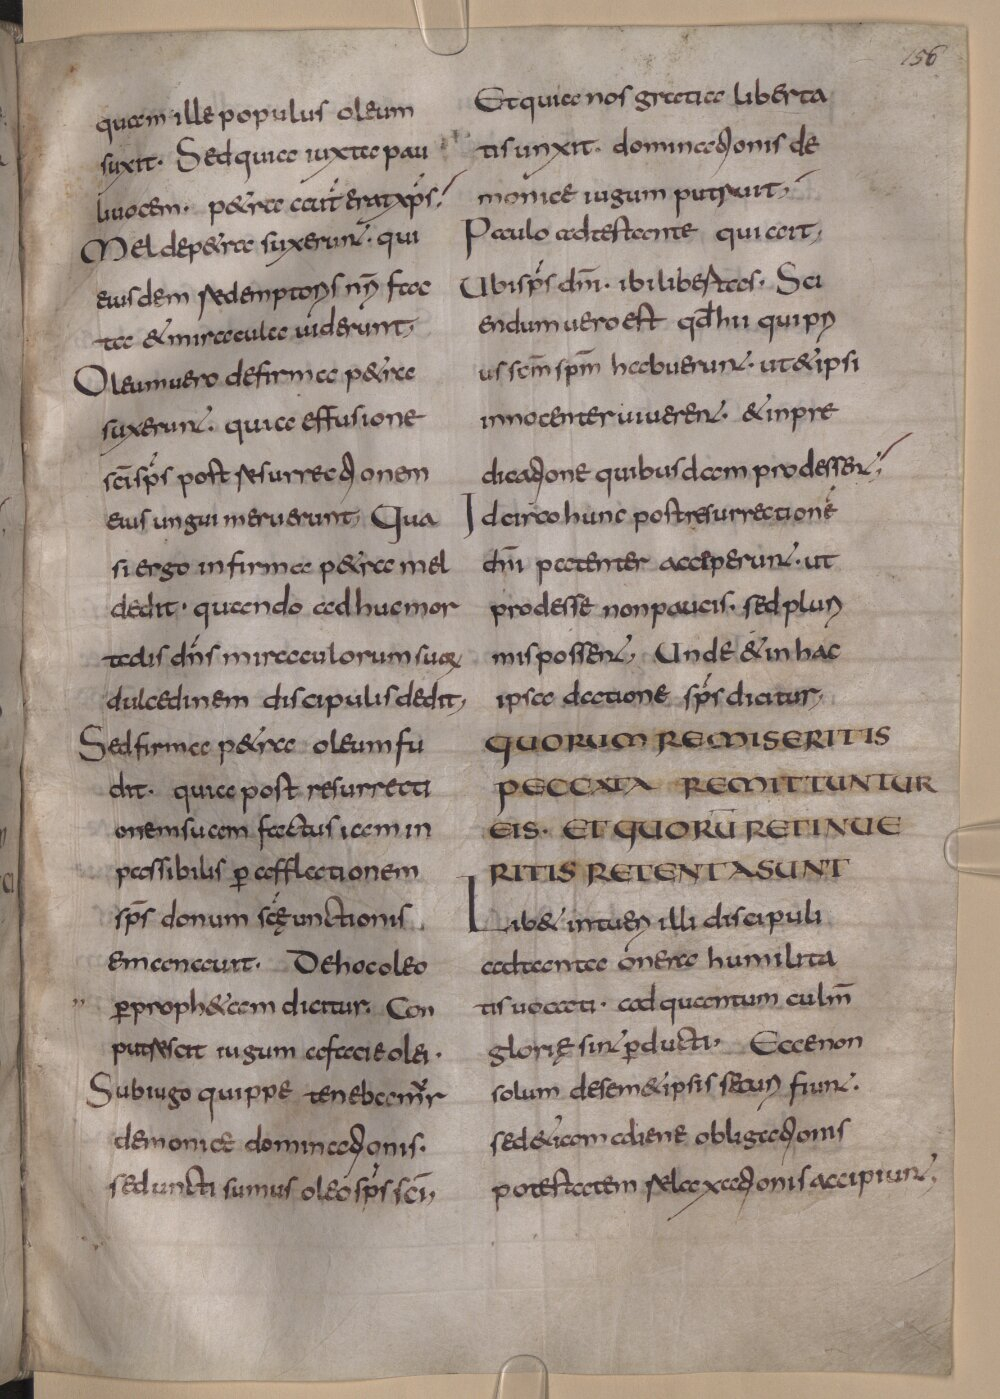 156
quam ille populus oleum
suxit. Sed quia iuxta pau
li uocem. petra aut erat xp̄s;
Mel de petra suxerunt. qui
eiusdem redemptoris nr̄i fac
ta & miracula uiderunt;
Oleum uero de firma petra
suxerunt. quia effusione
sc̄i sp̄s post resurrectionem
eius ungui meruerunt; Qua
si ergo infirma petra mel
dedit. quando adhuc mor
talis dn̄s miraculorum suoꝝ
dulcedinem discipulis dedit;
Sed firma petra oleum fu
dit. quia post resurrecti
onem suam factus iam in
passibilis ꝑ afflationem
sp̄s donum sc̄ę unctionis
emanauit. De hoc oleo
ꝑ proph&am dicitur. Con
putrescit iugum a facie olei.
Sub iugo quippe tenebamur
demonicę dominationis.
sed uncti sumus oleo sp̄s sc̄i;
Et quia nos gratia liberta
tis unxit. dominationis de
monicę iugum putruit;
Paulo adtestante qui ait;
Ubi sp̄s dn̄i. ibi libertas. Sci
endum uero est qd̄ hii qui pri
us sc̄m sp̄m habuerunt. ut & ipsi
innocenter uiuerent. & in pre
dicatione quibusdam prodessent;
Idcirco hunc post resurrectionē
dn̄i patenter acceperunt. ut
prodesse non paucis. sed pluri
mis possent; Unde & in hac
ipsa datione sp̄s dicitur;
QUORUM REMISERITIS
PECCATA REMITTUNTUR
EIS. ET QUORŪ RETINUE
RITIS RETENTA SUNT
Lib& intueri illi discipuli
ad tanta onera humilita
tis uocati. ad quantum culm̄
glorię sint ꝑducti. Ecce non
solum de sem&ipsis securi fiunt.
sed &iam alienę obligationis
potestatem relaxationis accipiunt;